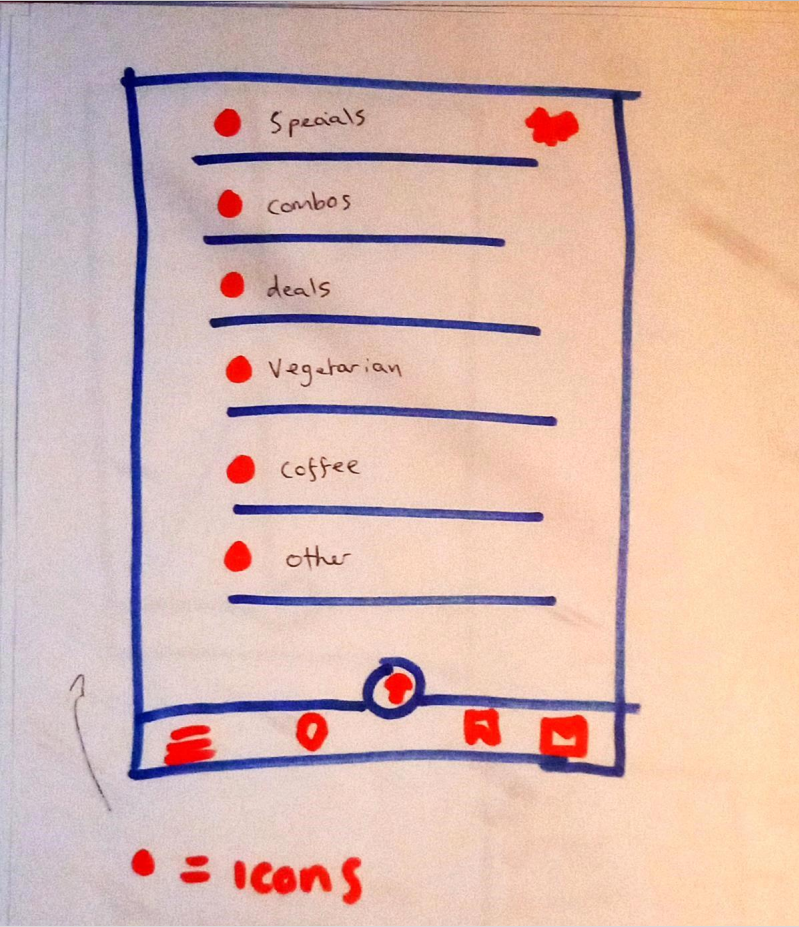 Specials
combos
deals
Vegetarian
coffee
other
= icons